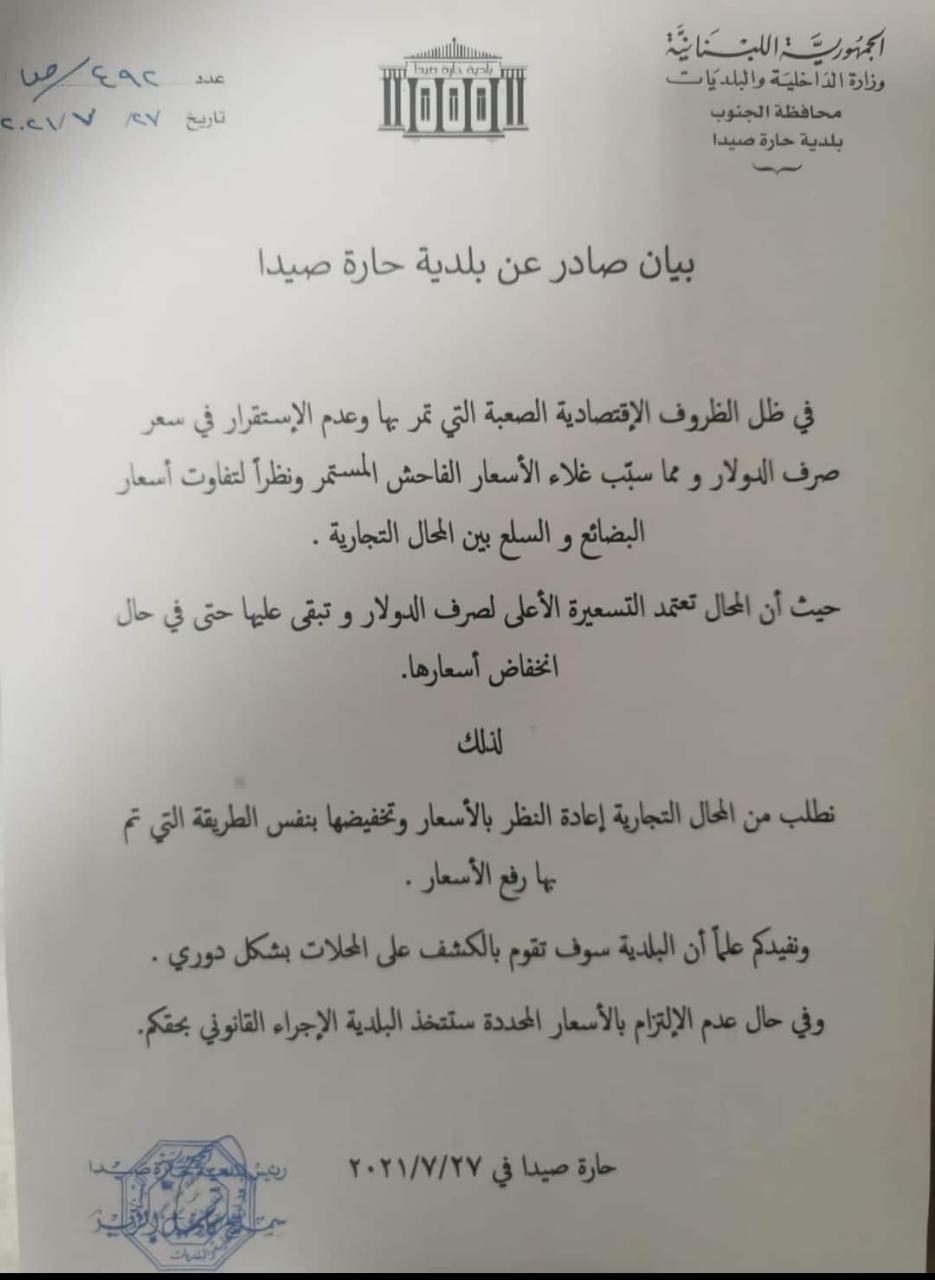 الجمهوريّة اللبنانيّة
وزارة الداخليّة والبلديّات
محافظة الجنوب
بلدية حارة صيدا
بلدية حارة صيدا
عدد ٤٩٢/ص
تاريخ ٢٧/ ٧/ ٢٠٢١
بيان صادر عن بلدية حارة صيدا
في ظل الظروف الإقتصادية الصعبة التي تمر بها وعدم الإستقرار في سعر
صرف الدولار و مما سبّب غلاء الأسعار الفاحش المستمر ونظراً لتفاوت أسعار
البضائع و السلع بين المحال التجارية .
حيث أن المحال تعتمد التسعيرة الأعلى لصرف الدولار و تبقى عليها حتى في حال
انخفاض أسعارها.
لذلك
نطلب من المحال التجارية إعادة النظر بالأسعار وتخفيضها بنفس الطريقة التي تم
بها رفع الأسعار .
ونفيدكم علماً أن البلدية سوف تقوم بالكشف على المحلات بشكل دوري .
وفي حال عدم الإلتزام بالأسعار المحددة ستتخذ البلدية الإجراء القانوني بحقكم.
حارة صيدا في ٢٠٢١/٧/٢٧
رئيس بلدية حارة صيدا
سميح